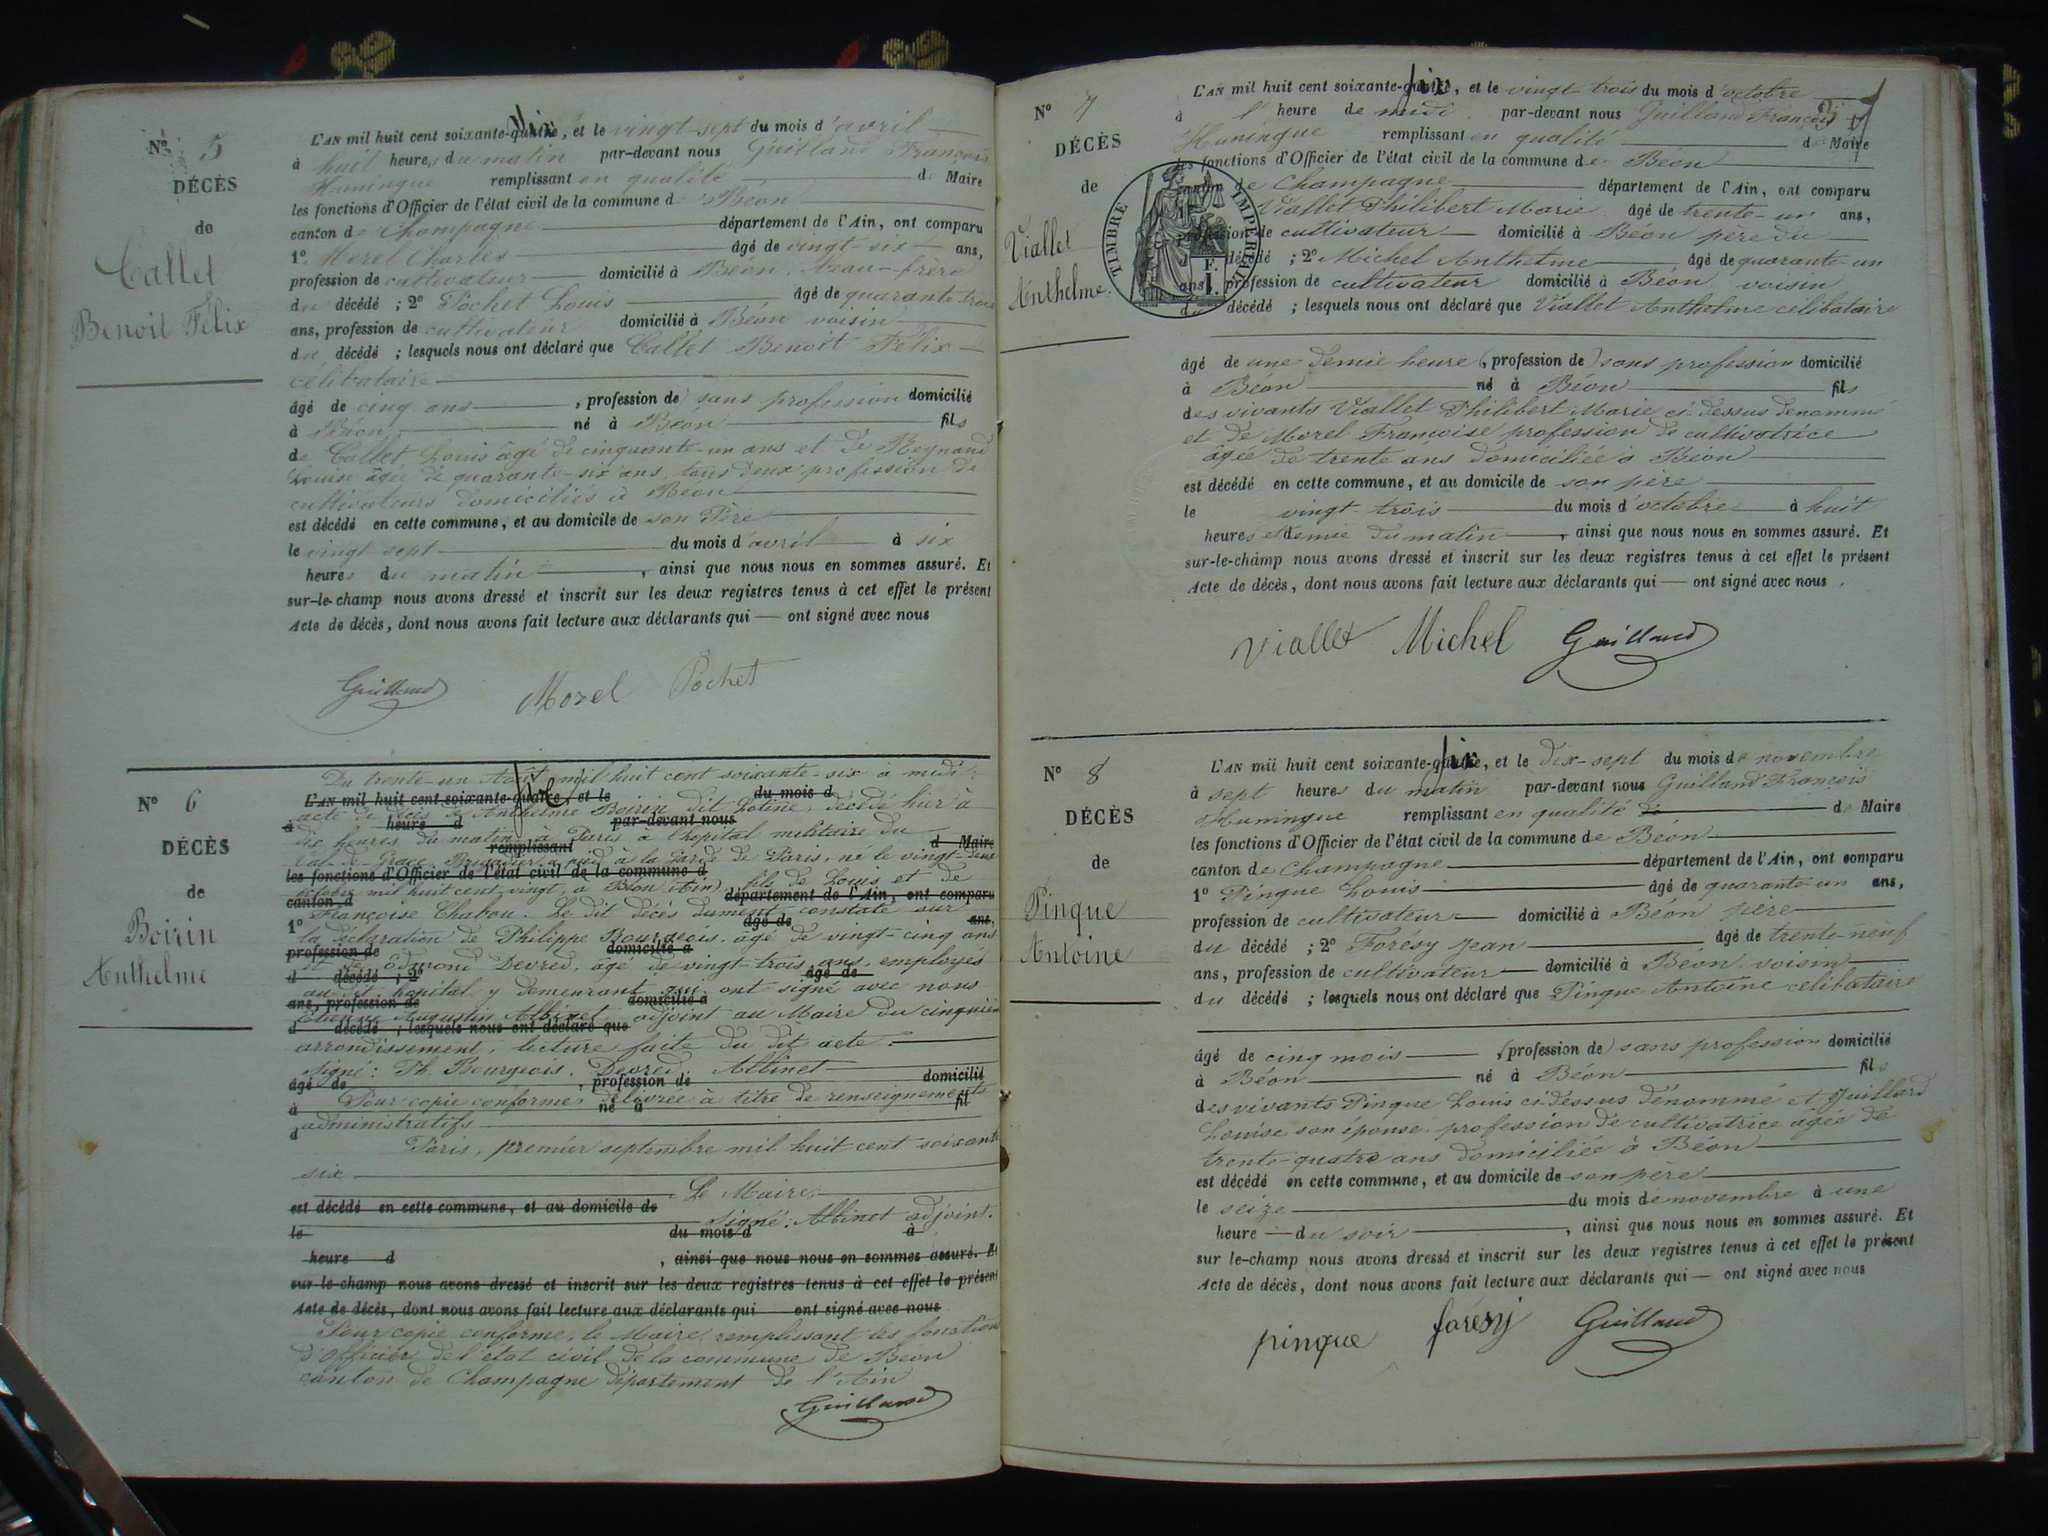 N° 5
DÉCÈS
de
Callet
Benoit Félix
L'AN mil huit cent soixante-quatre six, et le vingt-sept du mois d'avril
à huit heures du matin par-devant nous Guilland François
Humingue remplissant en qualité de Maire
les fonctions d'Officier de l'état civil de la commune de Béon
canton de Champagne département de l'Ain, ont comparu
1° Morel Charles âgé de vingt-six ans,
profession de cultivateur domicilié à Béon, beau-frère
du décédé ; 2° Pochet Louis âgé de quarante trois
ans, profession de cultivateur domicilié à Béon voisin
du décédé ; lesquels nous ont déclaré que Callet Benoit Félix
célibataire
âgé de cinq ans, profession de) sans profession domicilié
à Béon né à Béon fils
de Callet Louis âgé de cinquante-un ans et de Reynaud
Louise âgée de quarante-six ans, tous deux profession de
cultivateurs domiciliés à Béon
est décédé en cette commune, et au domicile de son Père
le vingt sept du mois d'avril à six
heures du matin, ainsi que nous nous en sommes assuré. Et
sur-le-champ nous avons dressé et inscrit sur les deux registres tenus à cet effet le présent
Acte de décès, dont nous avons fait lecture aux déclarants qui — ont signé avec nous
Guilland Morel Pochet
N° 6
DÉCÈS
de
Boirin
Anthelme
Du trente-un Août mil huit cent soixante-six à midi
L'AN mil huit cent soixante-quatre, et le du mois d
acte de décès de Anthelme Boirin dit décédé hier à
à heure d par-devant nous
dix heures du matin à Paris à l'hopital militaire du
remplissant d Maire
Val-de-Grace, Brigadier à pied à la Garde de Paris, né le vingt-deux
les fonctions d'Officier de l'état civil de la commune d
octobre mil huit cent vingt, à Béon (Ain), fils de Louis et de
canton d département de l'Ain, ont comparu
Françoise Chabou. Le dit décès dument constaté sur
1° âgé de ans,
la déclaration de Philippe Bourgeois, âgé de vingt-cinq ans
profession de domicilié à
et de Edmond Devred, âgé de vingt-trois ans, employés
d décédé ; 2° âgé de
au dit hopital y demeurant qui ont signé avec nous
ans, profession de domicilié à
Etienne Augustin Albinet, adjoint au Maire du cinquième
d décédé ; lesquels nous ont déclaré que
arrondissement, lecture faite du dit acte.
Signé : Ph. Bourgeois, Devred, Albinet
âgé de , profession de domicilié
Pour copie conforme, délivrée à titre de renseignements
à né à fil
administratifs
d
Paris, premier septembre mil huit cent soixante
six
Le Maire,
est décédé en cette commune, et au domicile de
Signé : Albinet adjoint.
le du mois d à
heure d , ainsi que nous nous en sommes assuré. Et
sur-le-champ nous avons dressé et inscrit sur les deux registres tenus à cet effet le présent
Acte de décès, dont nous avons fait lecture aux déclarants qui ont signé avec nous
Pour copie conforme, le Maire, remplissant les fonctions
d'Officier de l'état civil de la commune de Béon
canton de Champagne département de l'Ain
Guilland
N° 7
DÉCÈS
de
Viallet
Anthelme
TIMBRE IMPÉRIAL
L'AN mil huit cent soixante-quatre six, et le vingt trois du mois d'octobre
à l' heure de midi par-devant nous Guilland François
Humingue remplissant en qualité de Maire
les fonctions d'Officier de l'état civil de la commune de Béon
canton de Champagne département de l'Ain, ont comparu
Viallet Philibert Marie âgé de trente-un ans,
profession de cultivateur domicilié à Béon père du
décédé ; 2° Michel Anthelme âgé de quarante-un
ans, profession de cultivateur domicilié à Béon voisin
du décédé ; lesquels nous ont déclaré que Viallet Anthelme célibataire
âgé de une demie heure (profession de) sans profession domicilié
à Béon né à Béon fils
des vivants Viallet Philibert Marie ci-dessus dénommé
et de Morel Françoise profession de cultivatrice
âgée de trente ans domiciliée à Béon
est décédé en cette commune, et au domicile de son père
le vingt trois du mois d'octobre à huit
heures et demie du matin, ainsi que nous nous en sommes assuré. Et
sur-le-champ nous avons dressé et inscrit sur les deux registres tenus à cet effet le présent
Acte de décès, dont nous avons fait lecture aux déclarants qui — ont signé avec nous.
Viallet Michel Guilland
N° 8
DÉCÈS
de
Pinque
Antoine
L'AN mil huit cent soixante-quatre six, et le dix-sept du mois de novembre
à sept heures du matin par-devant nous Guilland François
Humingue remplissant en qualité de Maire
les fonctions d'Officier de l'état civil de la commune de Béon
canton de Champagne département de l'Ain, ont comparu
1° Pinque Louis âgé de quarante-un ans,
profession de cultivateur domicilié à Béon père
du décédé ; 2° Forésy Jean âgé de trente-neuf
ans, profession de cultivateur domicilié à Béon voisin
du décédé ; lesquels nous ont déclaré que Pinque Antoine célibataire
âgé de cinq mois (profession de) sans profession domicilié
à Béon né à Béon fils
des vivants Pinque Louis ci-dessus dénommé et Juilland
Louise son épouse profession de cultivatrice âgée de
trente-quatre ans domiciliée à Béon
est décédé en cette commune, et au domicile de son père
le seize du mois de novembre à une
heure — du soir, ainsi que nous nous en sommes assuré. Et
sur le-champ nous avons dressé et inscrit sur les deux registres tenus à cet effet le présent
Acte de décès, dont nous avons fait lecture aux déclarants qui — ont signé avec nous
pinque forésy Guilland